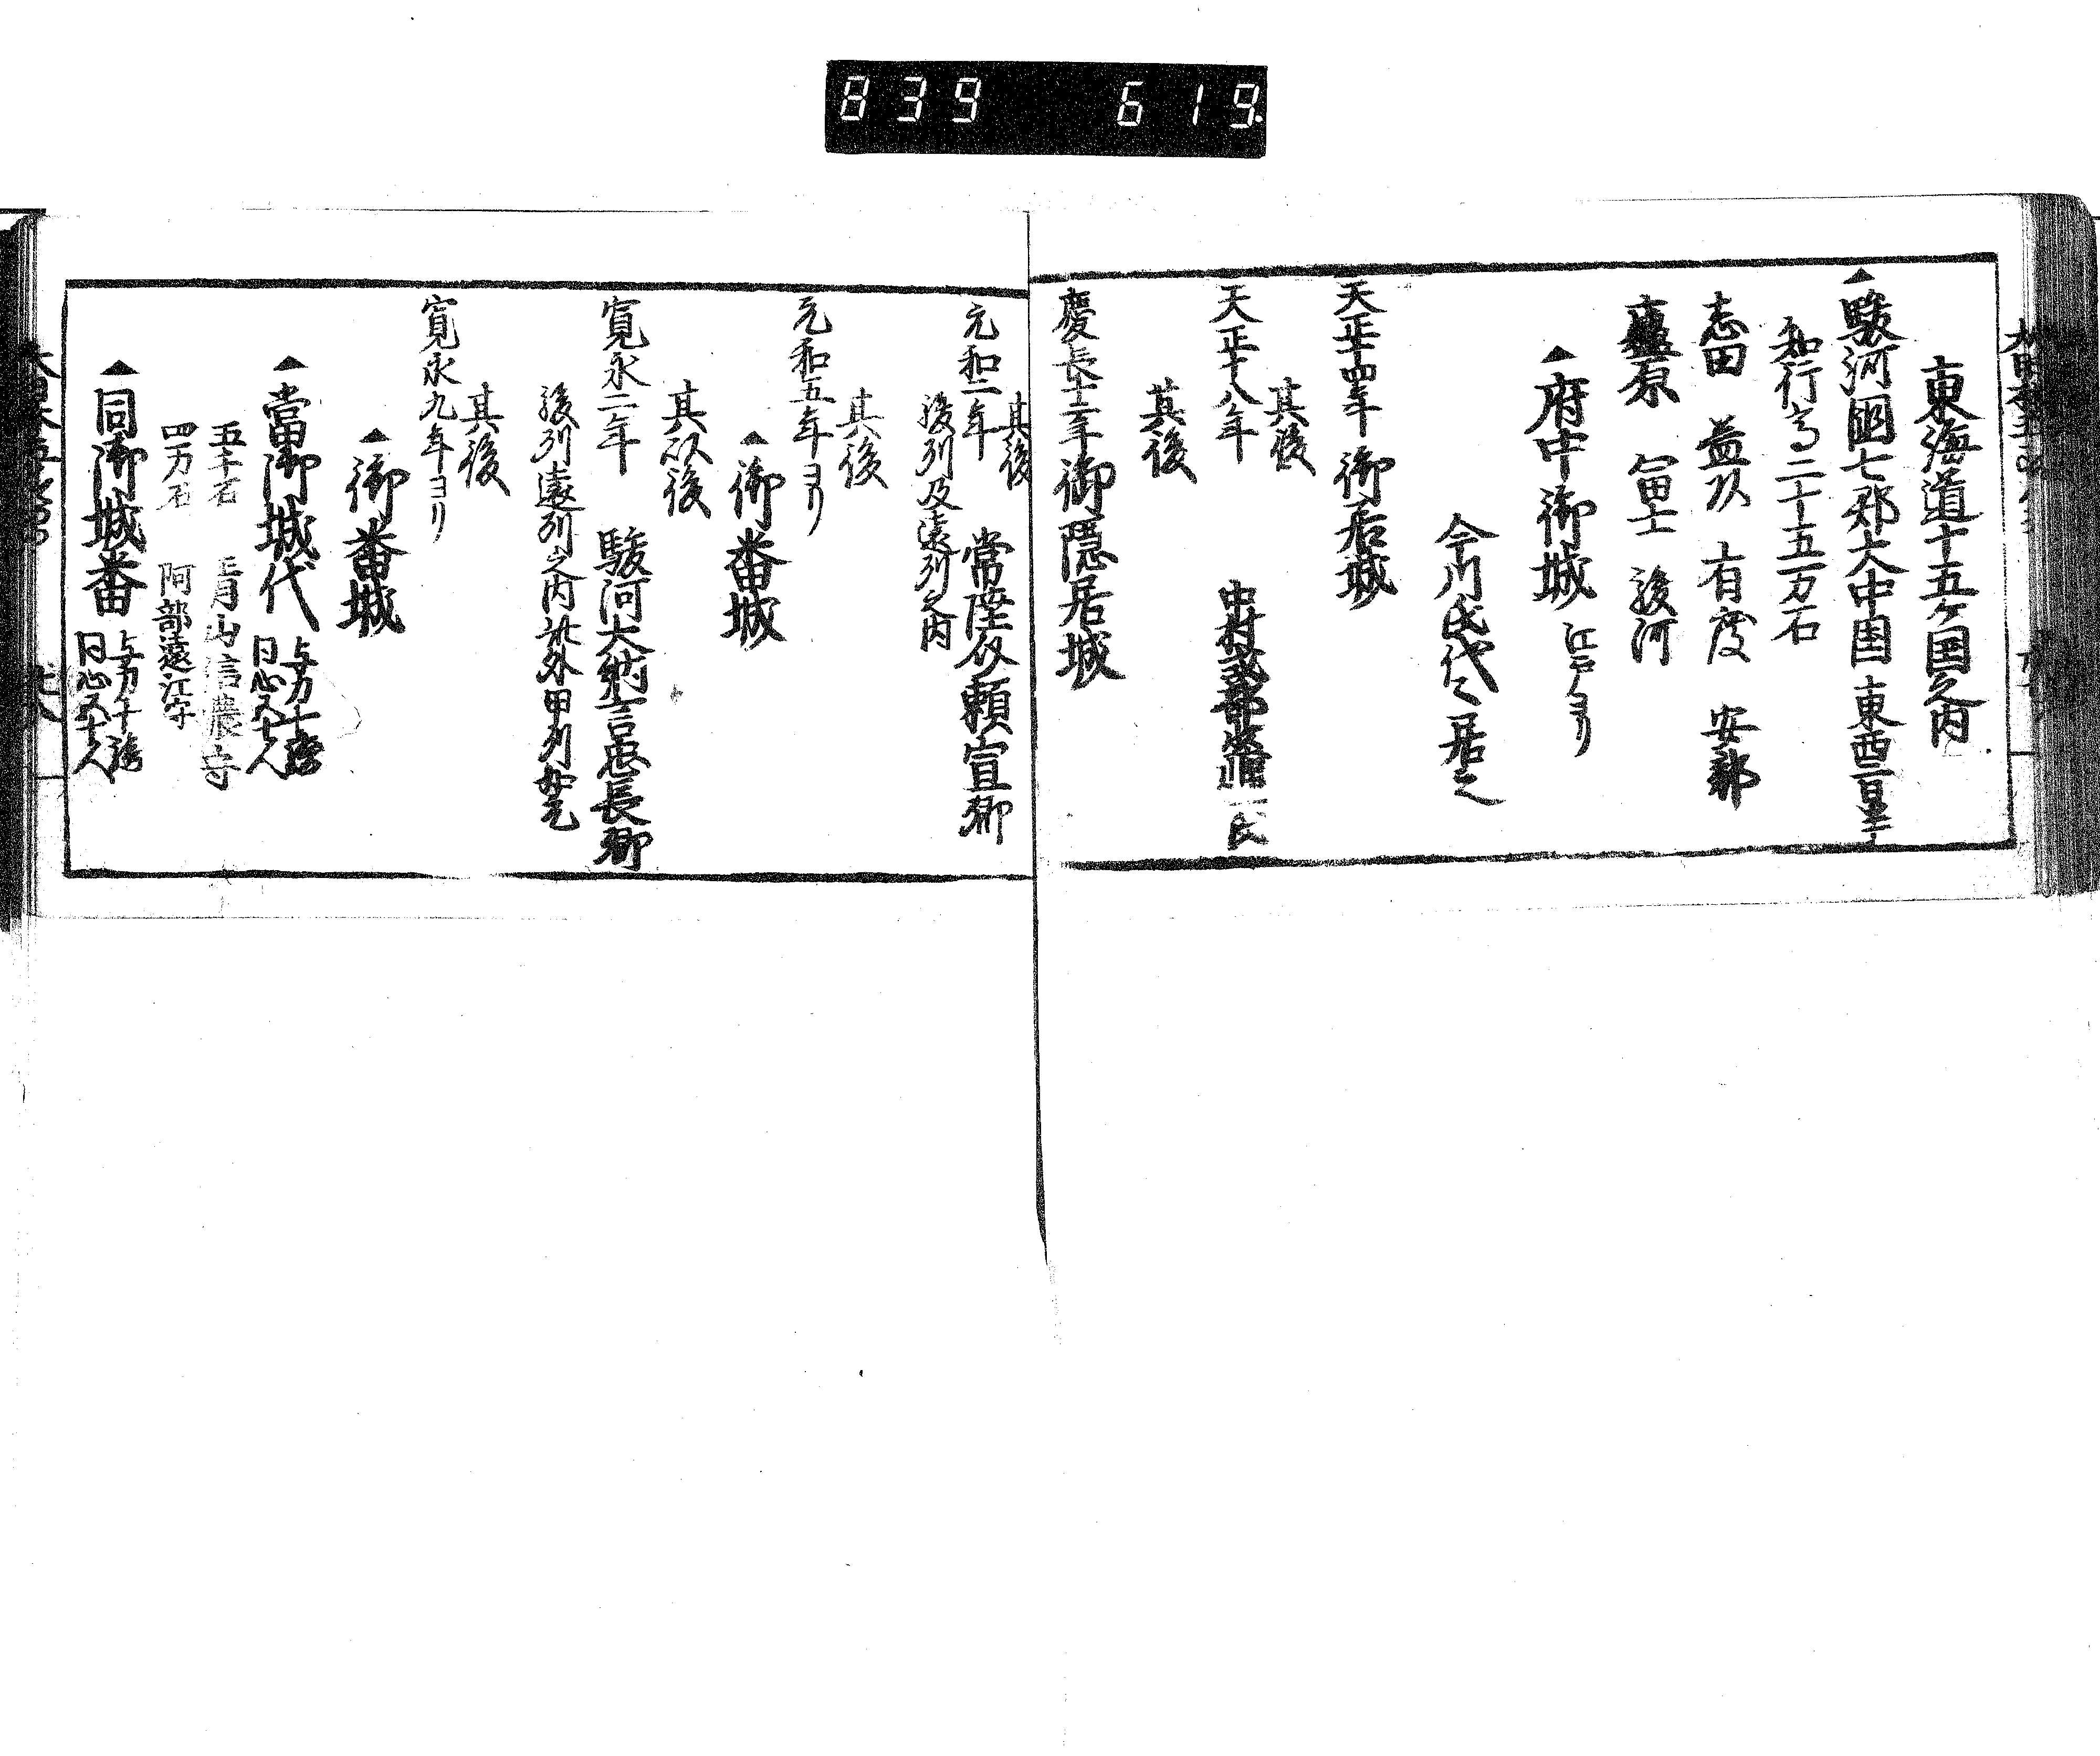 839 619.
東海道十五ヶ国之内
▲駿河国七郡大中国 東西二日半
知行高二十五万石
志田 益頭 有度 安部
廬原 冨士 駿河
▲府中御城 江戸ヨリ
今川氏代々居之
天正十四年 御居城
其後
天正十八年 中村式部少輔一氏
其後
慶長十二年御隠居城
其後
元和二年 常陸介頼宣卿
駿州及遠州之内
其後
元和五年ヨリ
▲御番城
其以後
寛永二年 駿河大納言忠長卿
駿州遠州之内此外甲州如元
其後
寛永九年ヨリ
▲御番城
▲當御城代 与力十騎 同心五十人
五千石 青山信濃守
四万石 阿部遠江守
▲同御城番 与力十騎 同心五十人